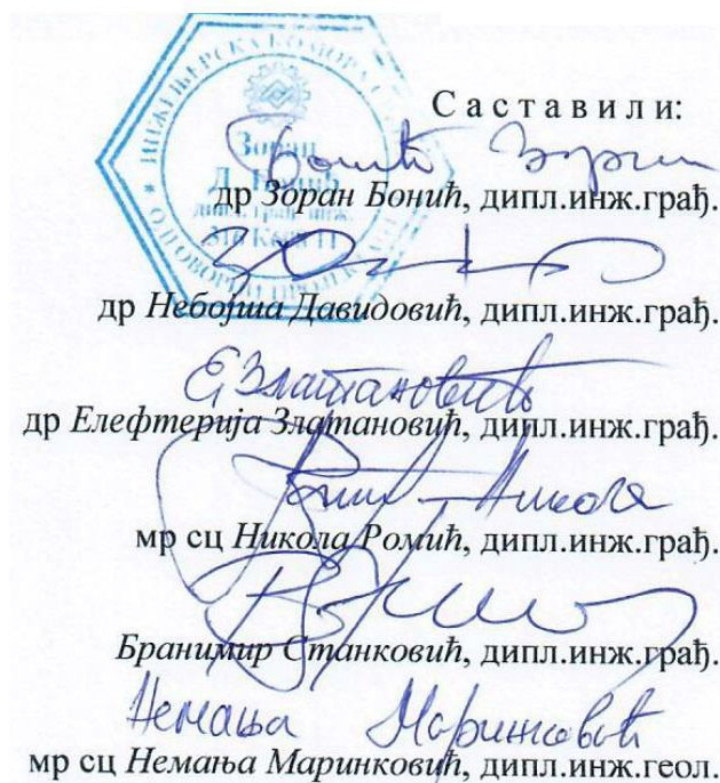 ИНЖЕЊЕРСКА КОМОРА
Зоран
дипл. грађ. инж.
ОДГОВОРНИ ПРОЈЕКТАНТ
Саставили:
Бонић Зоран
др Зоран Бонић, дипл.инж.грађ.
др Небојша Давидовић, дипл.инж.грађ.
Е Златановић
др Елефтерија Златановић, дипл.инж.грађ.
Никола
мр сц Никола Ромић, дипл.инж.грађ.
Бранимир Станковић, дипл.инж.грађ.
Немања Маринковић
мр сц Немања Маринковић, дипл.инж.геол.